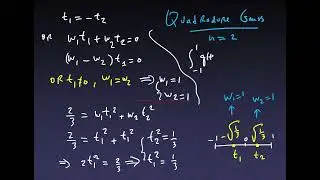 t₁ = -t₂
OR w₁t₁ + w₂t₂ = 0
(w₁ - w₂)t₂ = 0
OR t₁≠0, w₁ = w₂ ⇒ w₁ = 1
w₂ = 1
2/3 = w₁t₁² + w₂t₂²
2/3 = t₁² + t₁²
⇒ 2t₁² = 2/3 ⇒
{ t₂² = 1/3
t₁² = 1/3
Quadrature Gauss
n = 2
∫₋₁¹
w₁=1 w₂=1
-√1/3 √1/3
-1 1
t₁ t₂